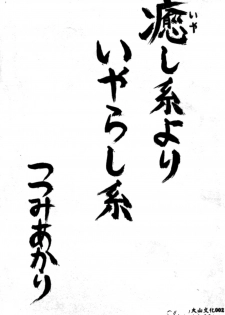 癒し系より
いや
いやらし系
つつみあかり
火山文化002